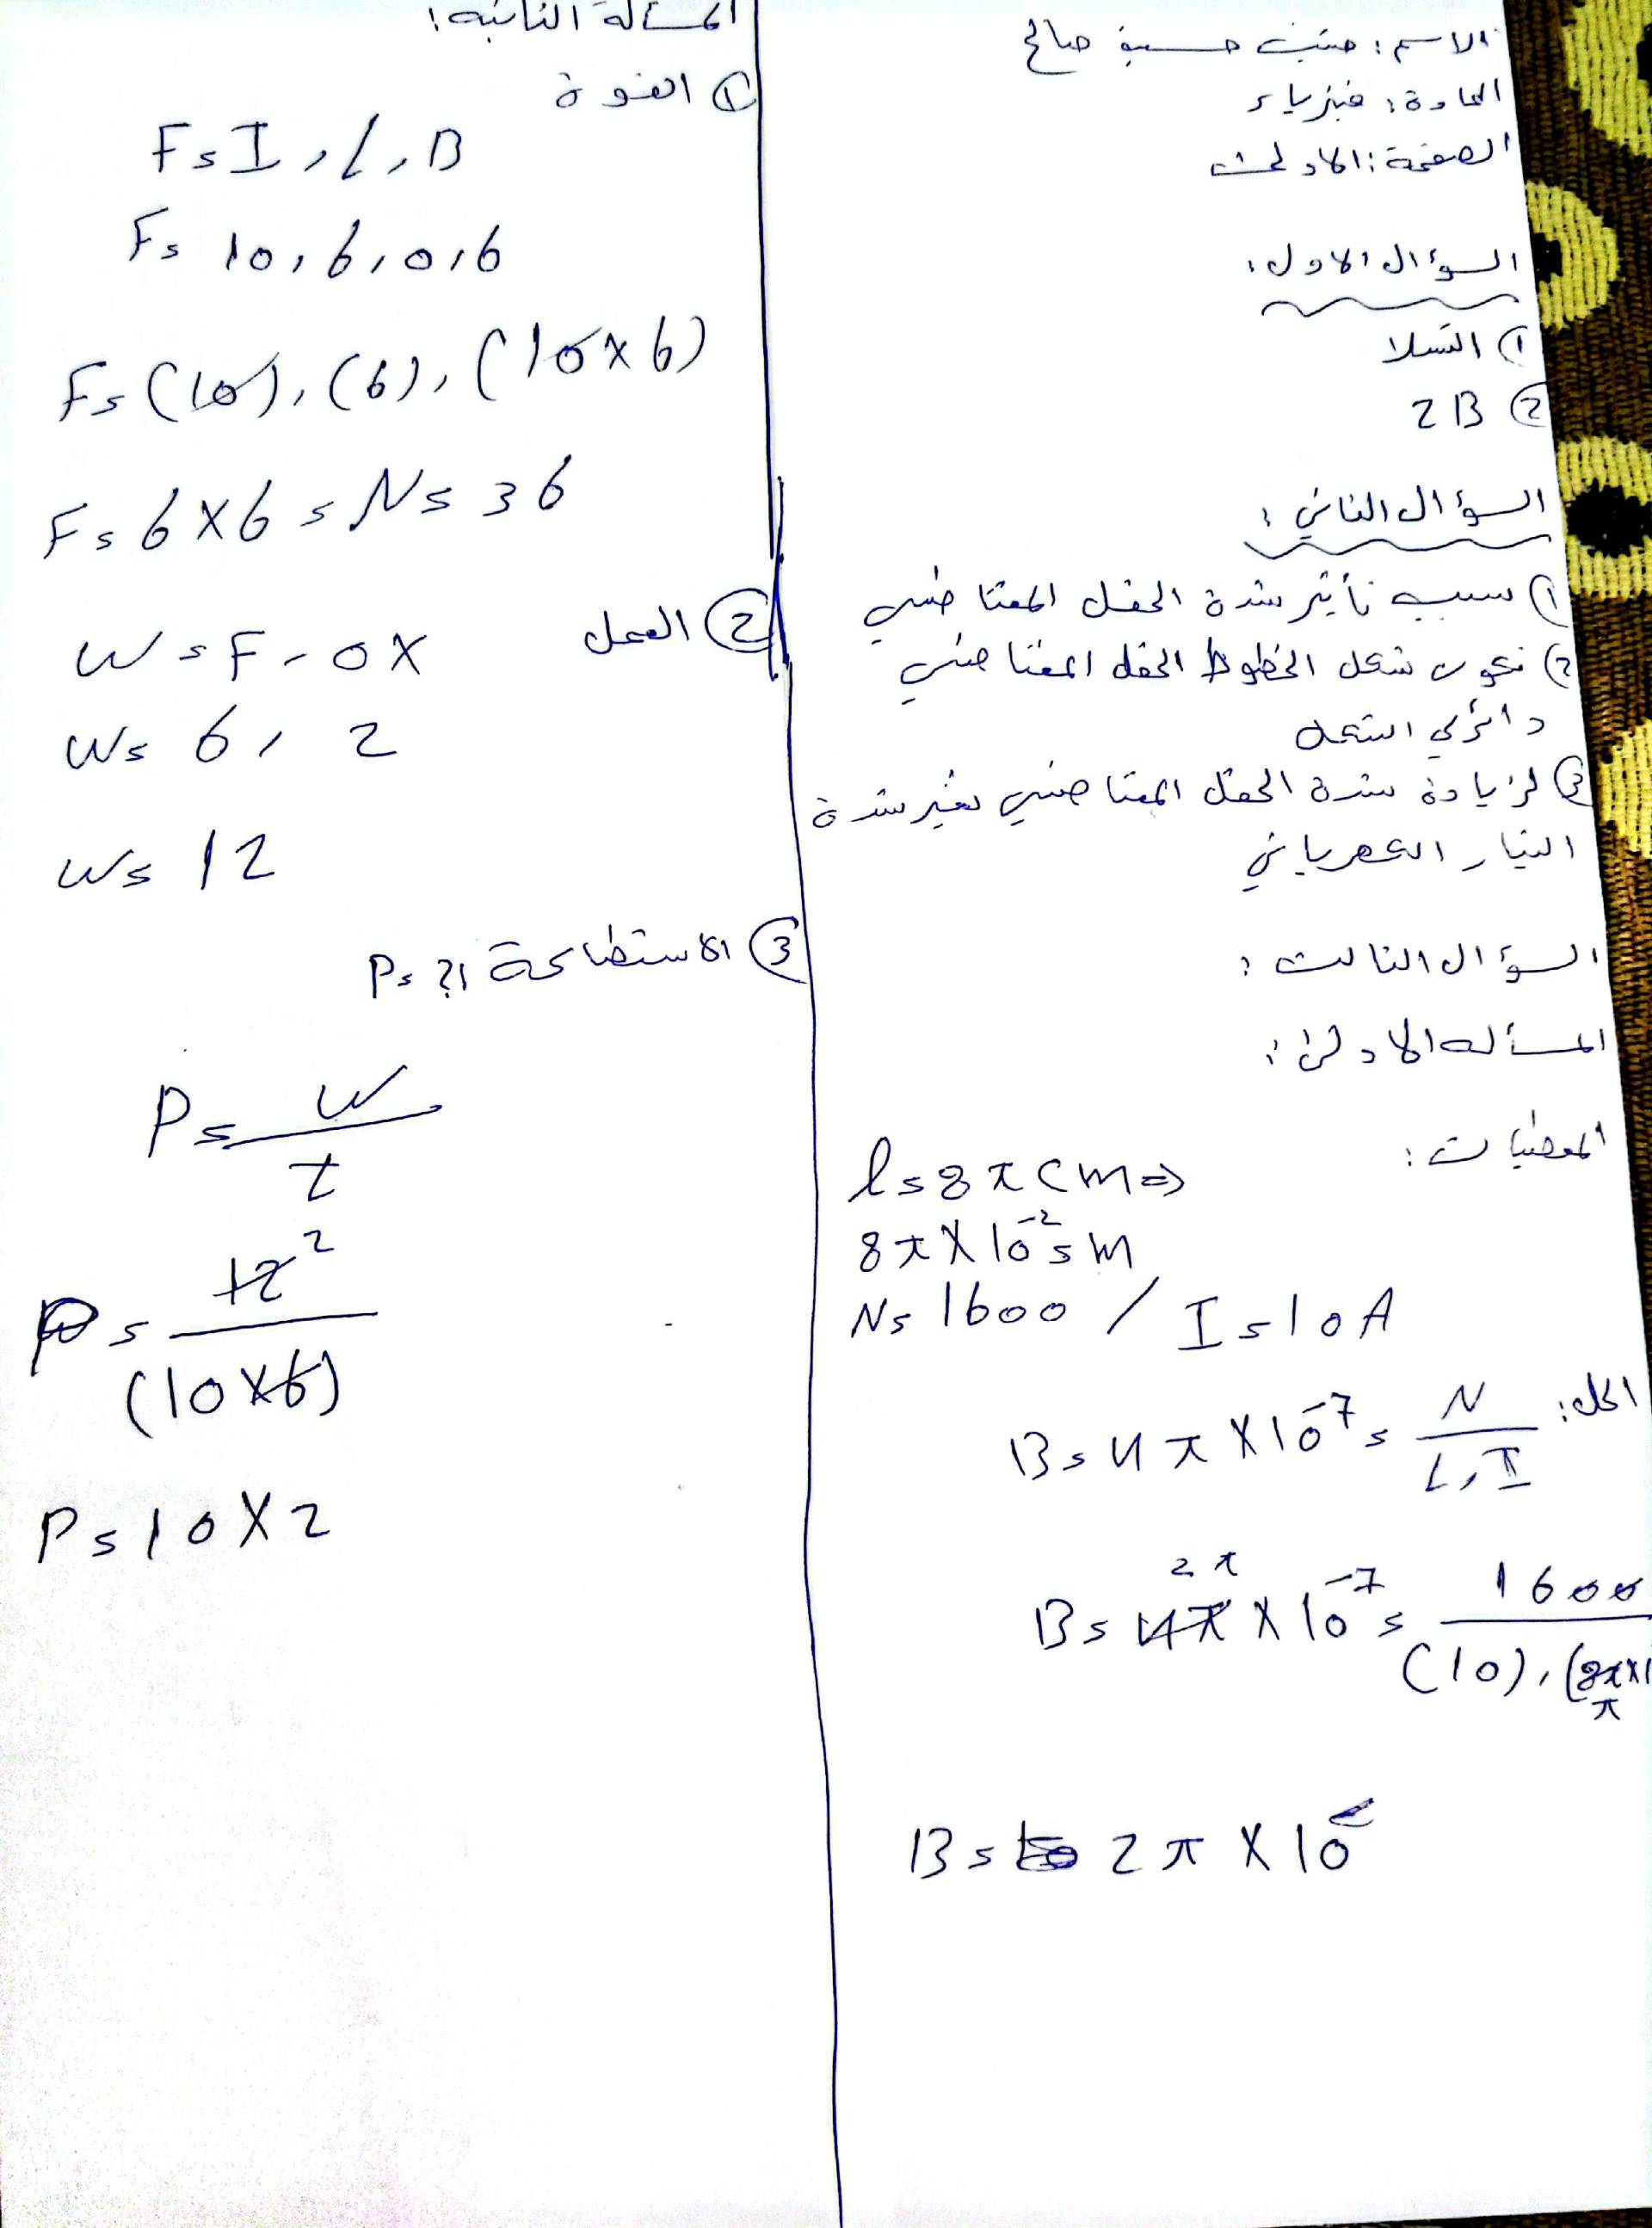 الاسم: حسين صالح
المادة: فيزياء
الصفحة: الاولى
السؤال الاول:
① التسلا
② 2B
السؤال الثاني:
① سبب تأثير شدة الحقل المغناطيسي
② تكون شكل الخطوط الحقل المغناطيسي
دائري الشكل
③ لزيادة شدة الحقل المغناطيسي نغير شدة
التيار الكهربائي
السؤال الثالث:
المسألة الاولى:
المعطيات:
l = 8π cm ⇒
8π × 10⁻² = m
N = 1600 / I = 10 A
الحل:
B = 4π × 10⁻⁷ = N / L, I
B = 4π × 10⁻⁷ = 1600 / (10), (8π×1
2π
π
B = 2π × 10
المسألة الثانية:
① القوة
F = I, L, B
F = 10, 6, 0, 6
F = (10), (6), (10 × 6)
F = 6 × 6 = N = 36
② العمل
W = F - 0X
W = 6, 2
W = 12
③ الاستطاعة P = ?
P = W / t
P = 12² / (10 × 6)
P = 10 × 2